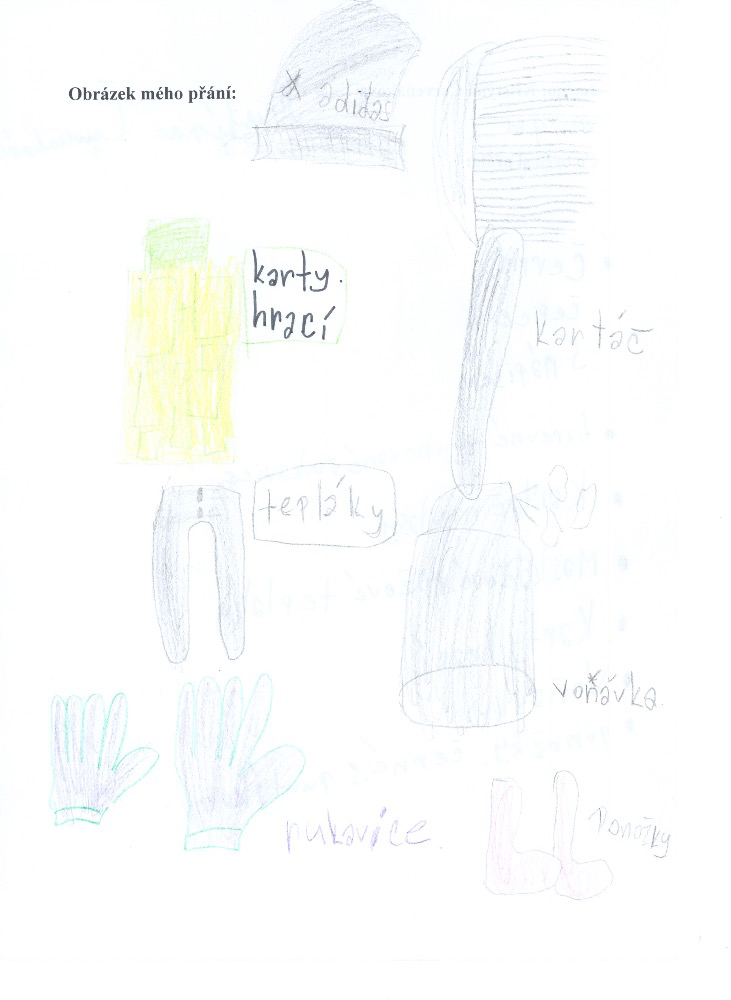 Obrázek mého přání:
adidas
karty.
hrací
kartáč
tepláky
voňávka
rukavice
Ponožky